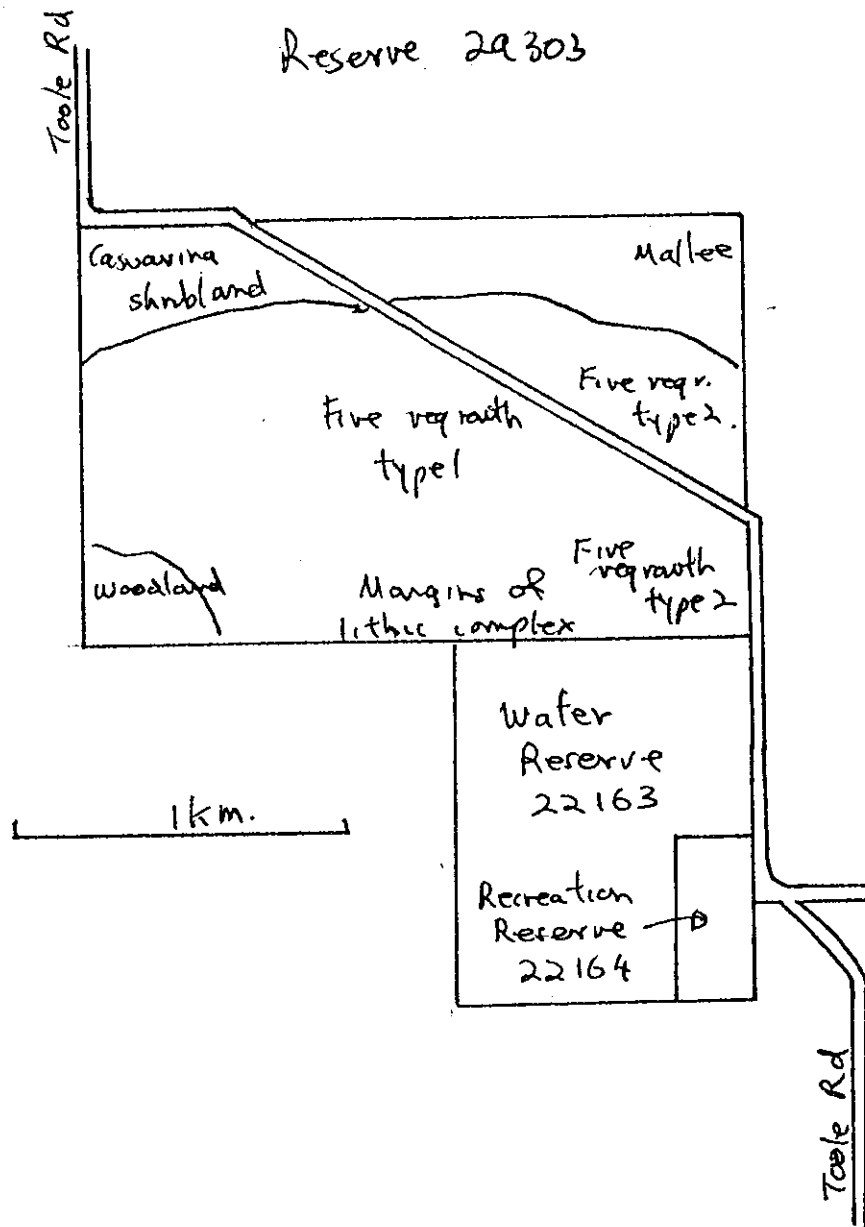 Reserve 29303
Toole Rd
Casuarina
shrubland
Mallee
Fire regrowth
type1
Fire regr.
type2.
Fire
regrowth
type2
woodland
Margins of
lithic complex
Water
Reserve
22163
1km.
Recreation
Reserve
22164
Toole Rd